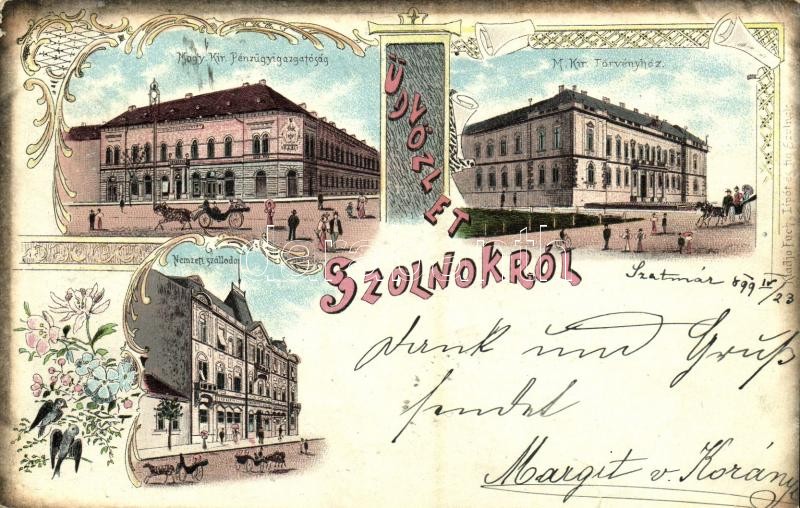 Magy. Kir. Pénzügyigazgatóság
M. Kir. Törvényház.
ÜDVÖZLET
SZOLNOKRÓL
Nemzeti szálloda
Szatmár 899 IV/23
Dank und Gruß
sendet
Margit v. Korány